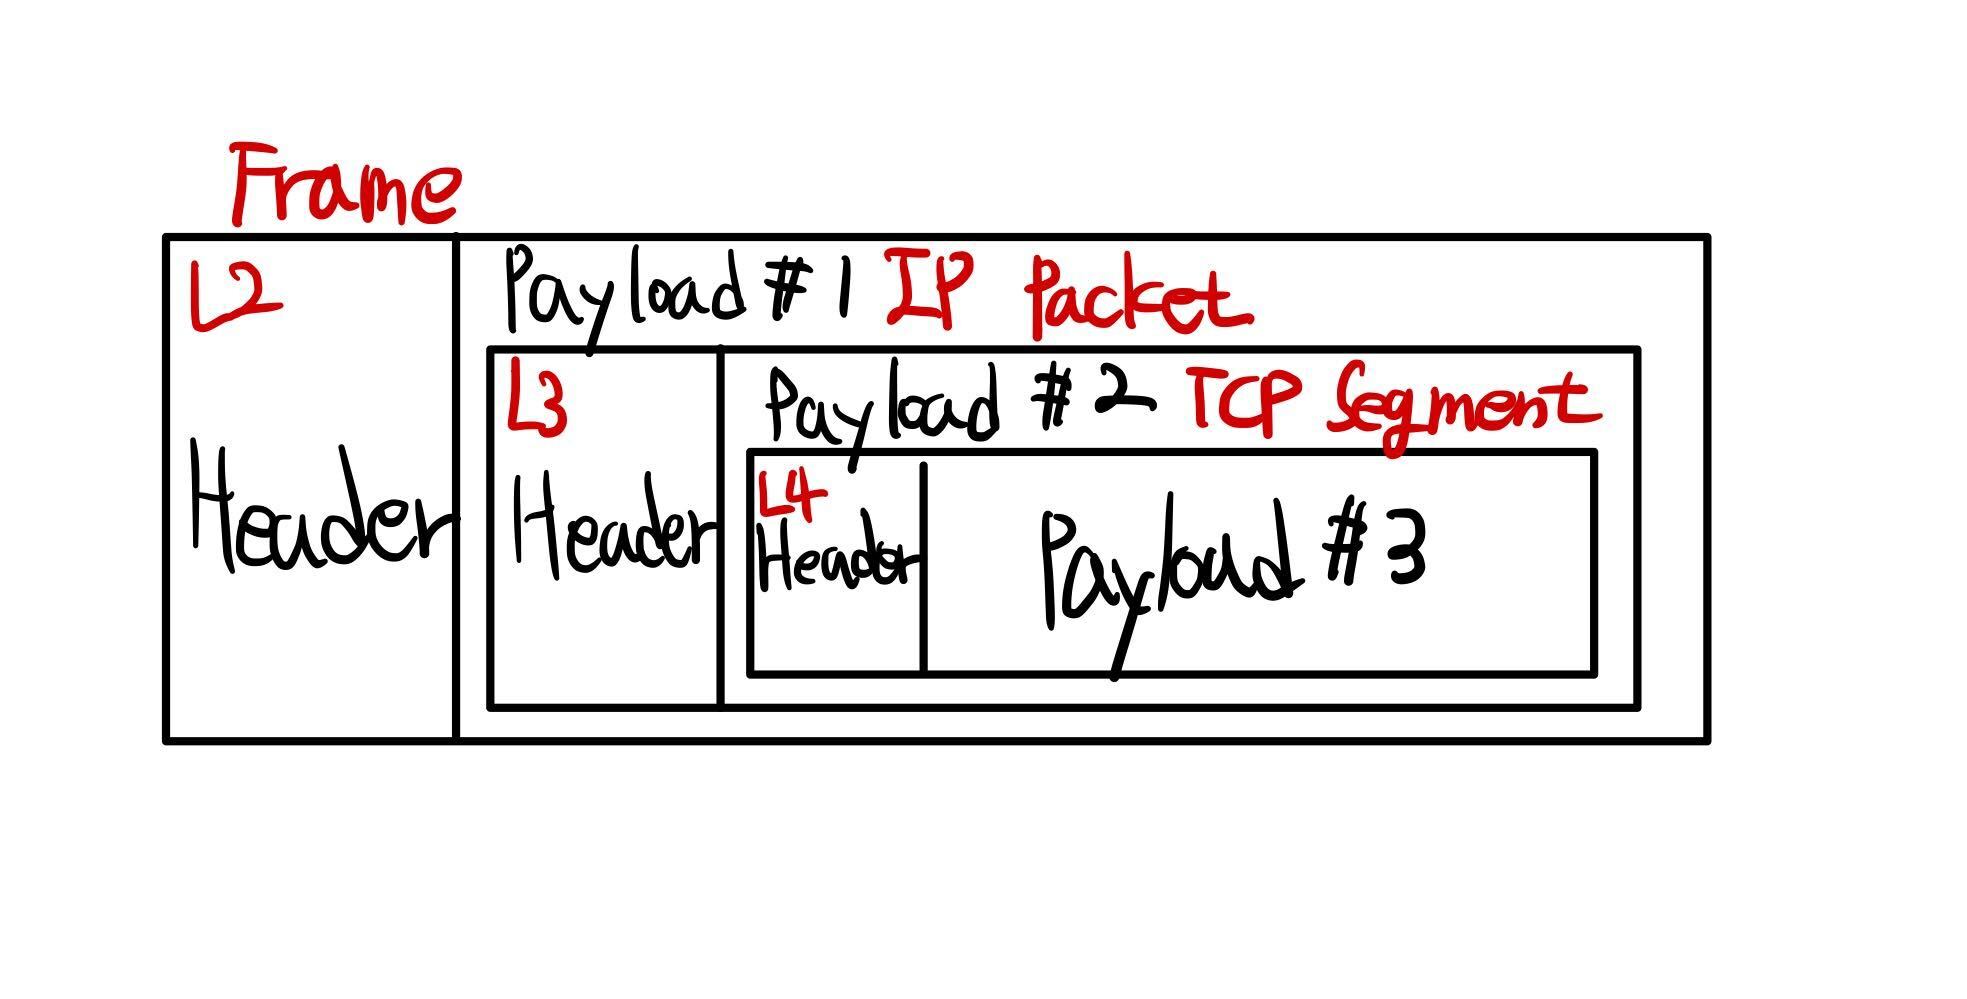 Frame
L2
Header
Payload #1 IP Packet
L3
Header
Payload #2 TCP Segment
L4
Header
Payload #3